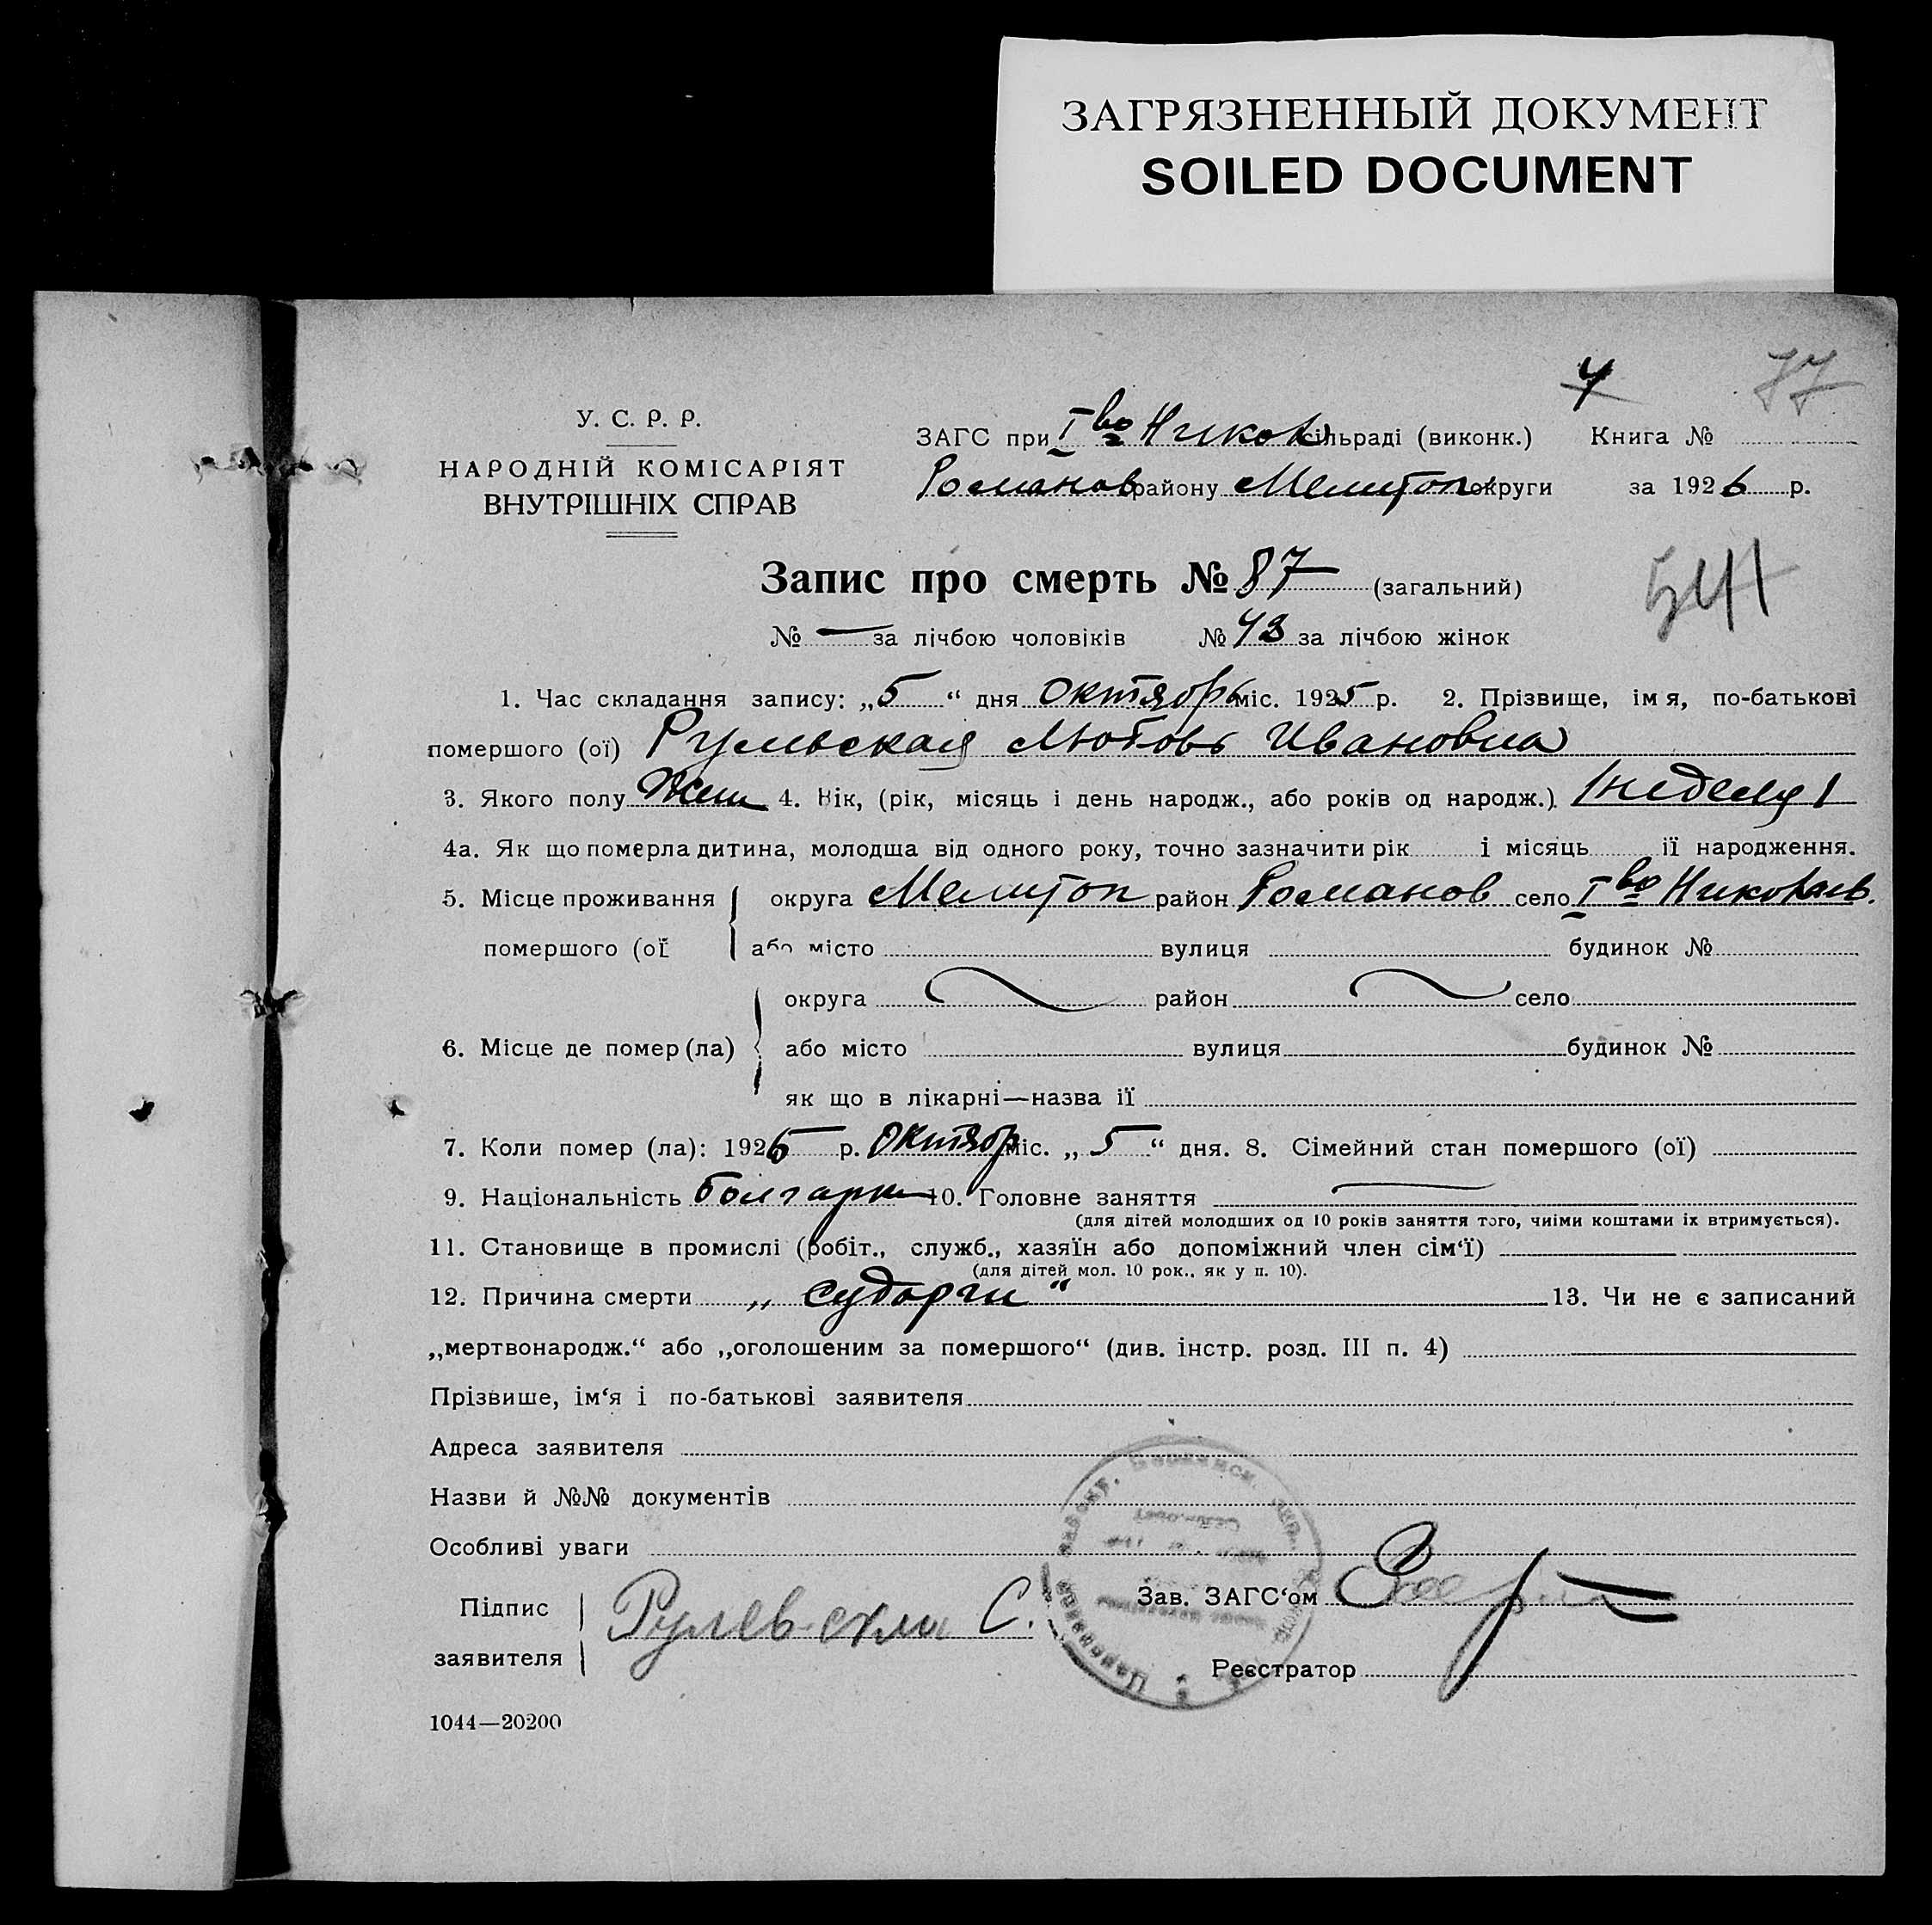 ЗАГРЯЗНЕННЫЙ ДОКУМЕНТ
SOILED DOCUMENT
77
У. С. Р. Р.
НАРОДНІЙ КОМІСАРІЯТ
ВНУТРІШНІХ СПРАВ
ЗАГС при Iво Никол сільраді (виконк.) Книга №
Романов району Мелитоп округи за 1926 р.
Запис про смерть № 87 (загальний)
541
№ — за лічбою чоловіків № 43 за лічбою жінок
1. Час складання запису: „5“ дня октябрь міс. 1925 р. 2. Прізвище, імя, по-батькові
помершого (ої) Рульвская Любовь Ивановна
3. Якого полу Жен 4. Вік, (рік, місяць і день народж., або років од народж.) 1 неделя
4а. Як що померла дитина, молодша від одного року, точно зазначити рік і місяць її народження.
5. Місце проживання округа Мелитоп район Романов село Iво Николаев.
помершого (ої або місто вулиця будинок №
округа район село
6. Місце де помер (ла) або місто вулиця будинок №
як що в лікарні—назва її
7. Коли помер (ла): 1925 р. октябр міс. „5“ дня. 8. Сімейний стан помершого (ої)
9. Національність болгарк 10. Головне заняття —
(для дітей молодших од 10 років заняття того, чиїми коштами їх втримується).
11. Становище в промислі (робіт., служб., хазяїн або допоміжний член сім‘ї)
(для дітей мол. 10 рок., як у п. 10).
12. Причина смерти „судорги“ 13. Чи не є записаний
„мертвонародж.“ або „оголошеним за помершого“ (див. інстр. розд. III п. 4)
Прізвише, ім‘я і по-батькові заявителя
Адреса заявителя
Назви й №№ документів
Особливі уваги
Підпис
заявителя
С.
Зав. ЗАГС‘ом
Реєстратор
1044—20200